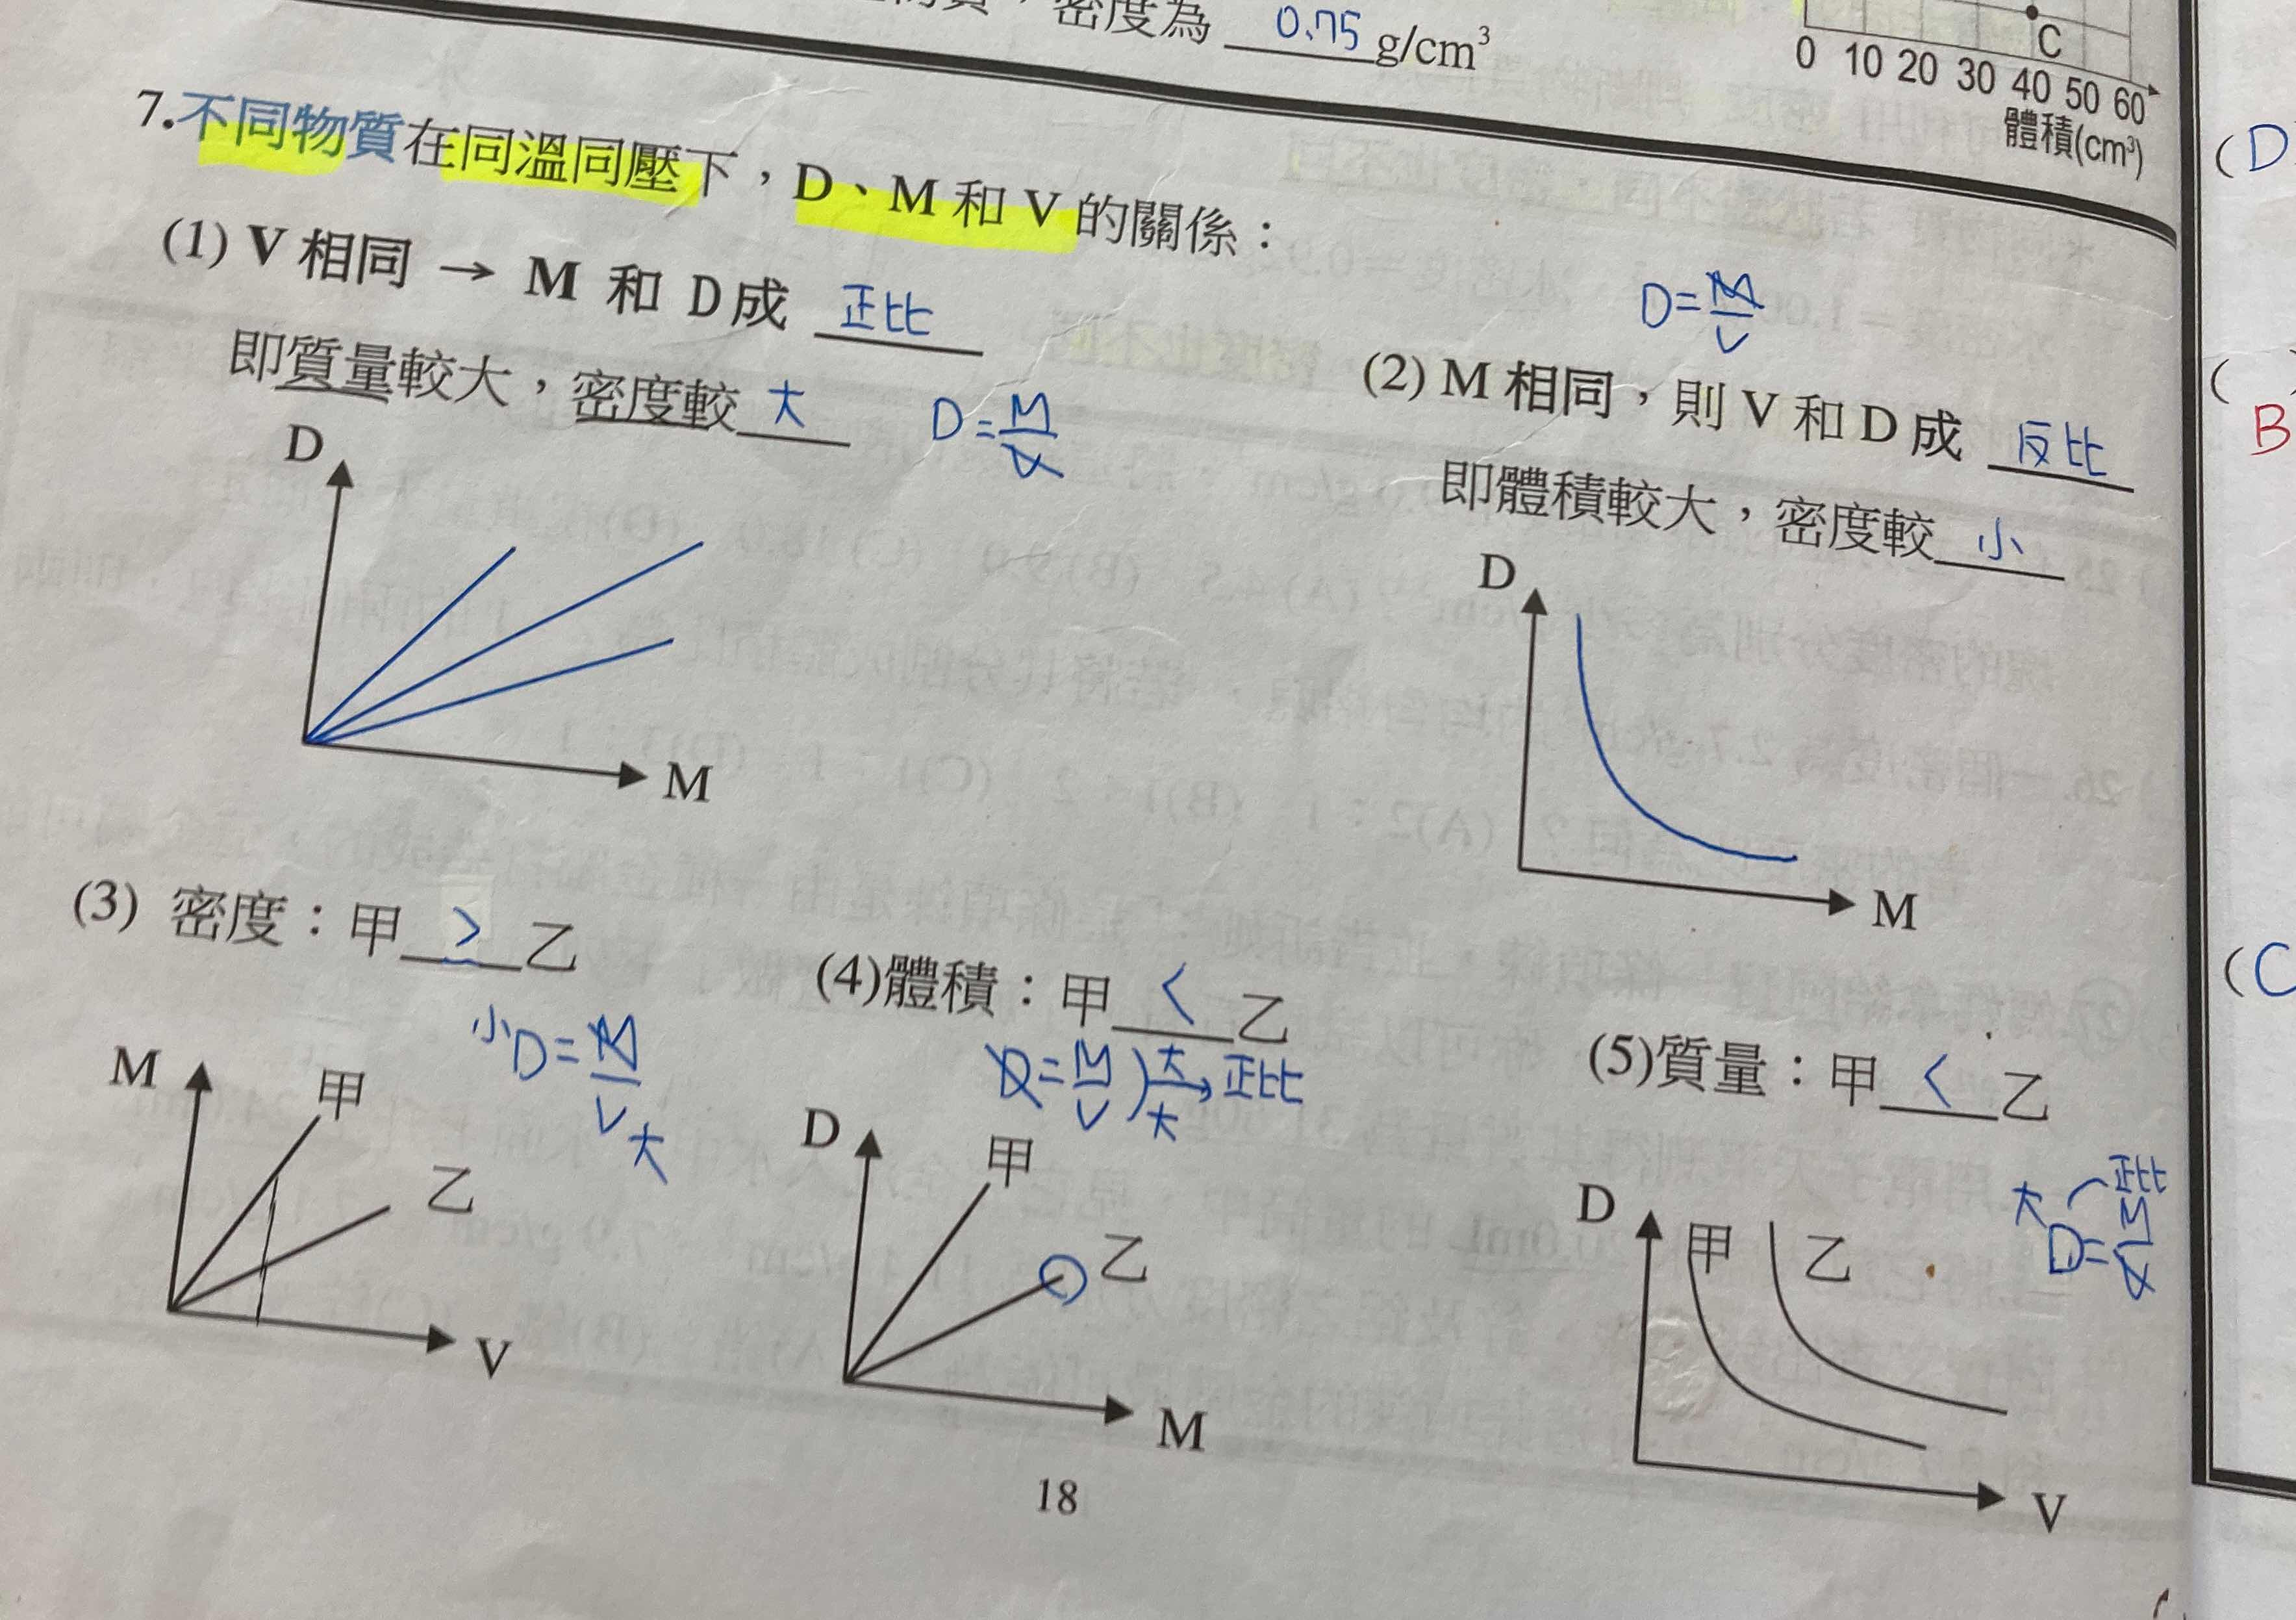 密度為 0.75 g/cm³
C
0 10 20 30 40 50 60
體積(cm³)
7.不同物質在同溫同壓下，D、M 和 V 的關係：
(1) V 相同 → M 和 D成 正比
即質量較大，密度較 大
D=M/V
D
M
D=M/V
(2) M 相同，則 V 和 D 成 反比
即體積較大，密度較 小
D
M
(3) 密度：甲 > 乙
小D=M/V大
M
甲
乙
V
(4)體積：甲 < 乙
D=M/V)大/大→正比
D
甲
乙
M
(5)質量：甲 < 乙
正比
大D=M/V
D
甲
乙
V
18
(D
(
B
(C